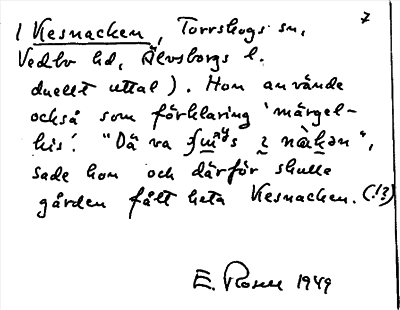 7
/ Kesnacken, Torrskogs sn,
Vedbo hd, Älvsborgs l.
duellt uttal). Hon använde
också som förklaring 'märgel-
his'. "Dä va
sade hon och därför skulle
gården fått heta Kesnacken. (!?)
E. Rosell 1949